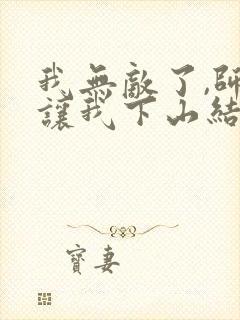 我無敵了,師
讓我下山結
寶妻